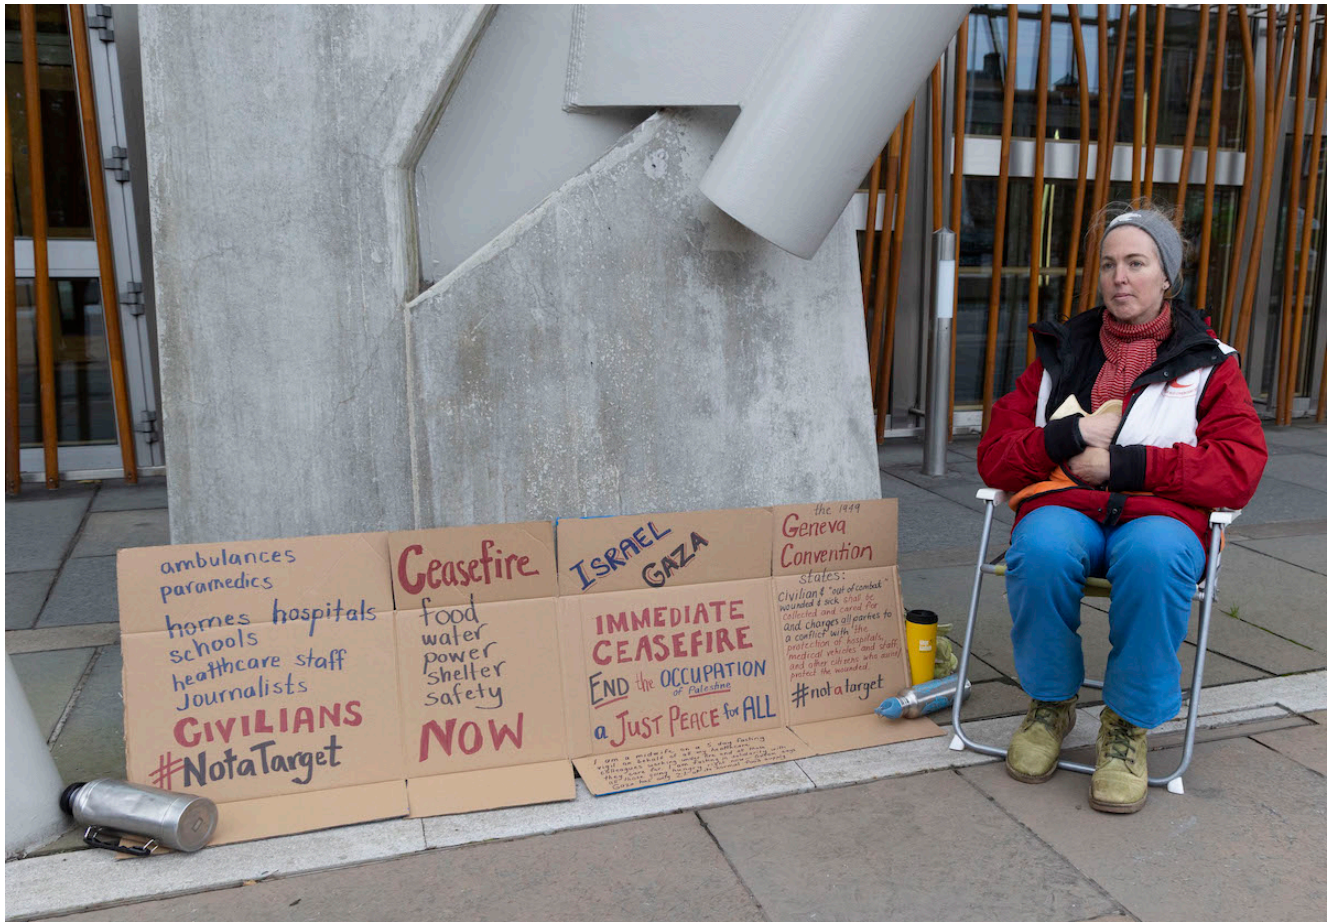 ambulances
paramedics
homes hospitals
schools
healthcare staff
Journalists
CIVILIANS
#NotaTarget
Ceasefire
food
water
power
shelter
safety
NOW
ISRAEL
GAZA
IMMEDIATE
CEASEFIRE
END the OCCUPATION
of Palestine
a JUST PEACE for ALL
I am a midwife, on a 5 day fasting
vigil on behalf of my healthcare
the 1949
Geneva
Convention
states:
Civilian & "out of combat"
wounded & sick shall be
collected and cared for
and charges all parties to
a conflict with the
protection of hospitals,
medical vehicles and staff,
and other citizens who
protect the wounded.
#notatarget